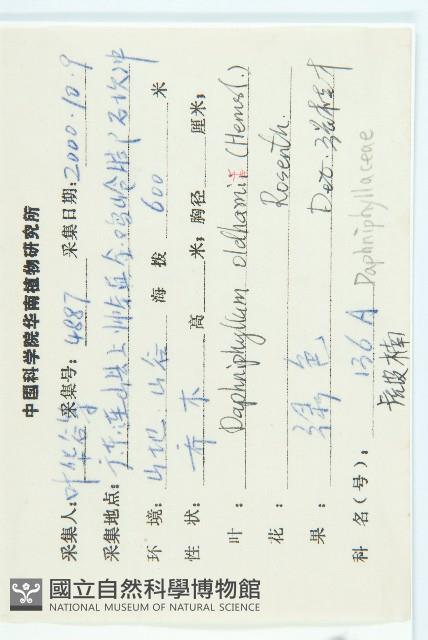 中國科学院华南植物研究所
采集人: 叶华谷 采集号: 4887 采集日期: 2000.10.9
采集地点: 广东.连山县上帅
环 境: 山地 山谷 海 拨 600 米
性 状: 乔 木 高 米; 胸径 厘米;
叶: Daphniphyllum oldhamii (Hemsl.)
花 Rosenth.
果: 绿 色 Det.
科 名(号): 136A Daphniphyllaceae
虎皮楠
國立自然科學博物館
NATIONAL MUSEUM OF NATURAL SCIENCE